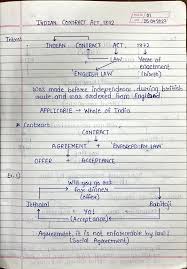 01
INDIAN CONTRACT ACT, 1872
INDIAN CONTRACT ACT, 1872
LAW Year of
enactment
"ENGLISH LAW" (birth)
Was made before independence during british
rule and was ordered from England
APPLICABLE → Whole of India
* Contract
CONTRACT
AGREEMENT + ENFORCED BY LAW
OFFER ACCEPTANCE
Will you go out
for dinner
(offer)
Jethalal Babitaji
Yes!
(Acceptance)
Agreement, it is not enforceable by law!
(Social Agreement)